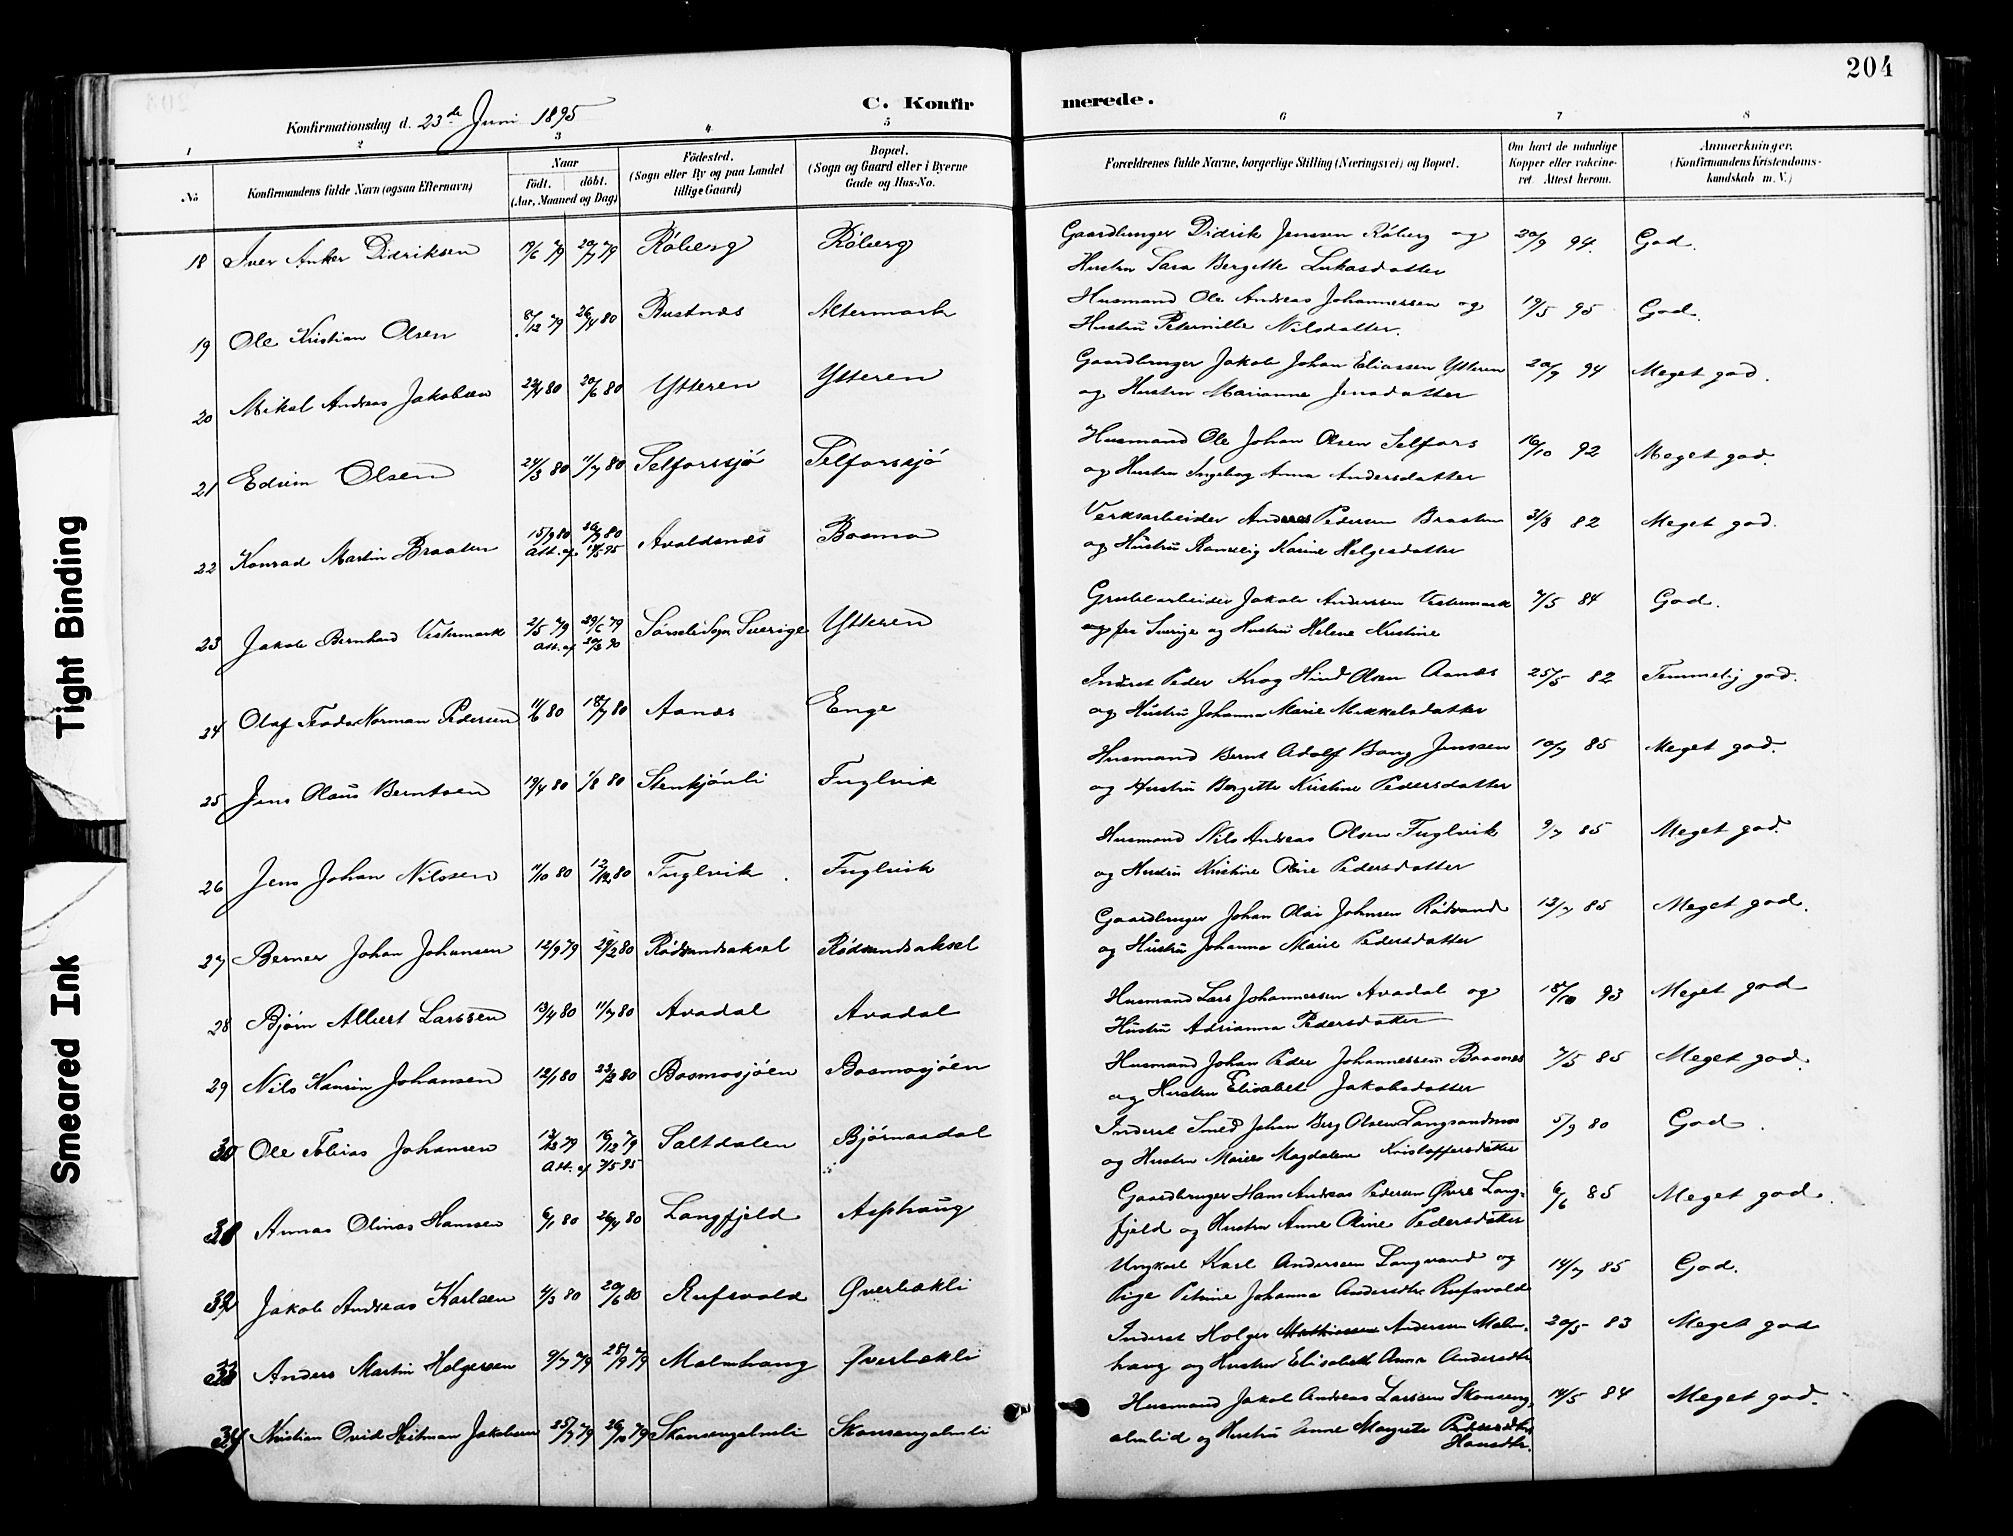 204
C. Konfir merede.
Konfirmationsdag d. 23de Juni 1895
1 2 3 4 5 6 7 8
No Konfirmandens fulde Navn (ogsaa Efternavn) Naar født. døbt. (Aar, Maaned og Dag) Fødested. (Sogn eller By og paa Landet tillige Gaard) Bopæl. (Sogn og Gaard eller i Byerne Gade og Hus-No. Forældrenes fulde Navne, borgerlige Stilling (Næringsvei) og Bopæl. Om havt de naturlige Kopper eller vakcineret. Attest herom. Anmærkninger. (Konfirmandens Kristendomskundskab m. V.)
18 Iver Anker Didriksen 19/6 79 20/7 79 Røberg Røberg Gaardbruger Didrik Jenssen Røberg og 20/9 94. God.
Hustru Sara Bergette Lukasdatter
19 Ole Kristian Olsen 8/12 79 26/4 80 Bustnæs Altermark Husmand Ole Andreas Johannessen og 19/5 95 God.
Hustru Peternille Nilsdatter.
20 Mikal Andreas Jakobsen 22/4 80 20/6 80 Ytteren Ytteren Gaardbruger Jakob Johan Eliassen Ytteren 20/9 94 Meget god.
og Hustru Marianne Jensdatter
21 Edvin Olsen 24/3 80 11/7 80 Selforssjø Selforssjø Husmand Ole Johan Olsen Selfors 16/10 92 Meget god.
og Hustru Ingeborg Anna Andersdatter
22 Konrad Martin Braaten 15/9 80 Att. af 95 Avaldsnæs Bosmo Verksarbeider Anders Pedersen Braaten 3/8 82 Meget god.
og Hustru Karine Helgesdatter
23 Jakob Bernhard Vestermark 2/5 79 29/6 79 Att. af 90 Sørsele Sogn Sverige Ytteren Grubearbeider Jakob Anderssen Vestermark 7/5 84 God.
fra Sverige og Hustru Helene Kristine
24 Olaf Norman Pedersen 11/6 80 18/7 80 Aanæs Enge Inderst Peder Krog Hind Olsen Aanæs 25/5 82 Temmelig god.
og Hustru Johanna Marie Mikkelsdatter
25 Jens Olaus Berntsen 19/4 80 1/8 80 Stenkjønli Fuglvik Husmand Bernt Adolf Bang Jenssen 10/7 85 Meget god.
og Hustru Bergette Kristine Pedersdatter
26 Jens Johan Nilssen 11/10 80 12/12 80 Fuglvik. Fuglvik Husmand Nils Andreas Olsen Fuglvik 9/7 85 Meget god.
og Hustru Kristine Oline Pedersdatter
27 Berner Johan Johansen 12/9 79 29/2 80 Rødsandsaksel Rødsandsaksel Gaardbruger Johan Olai Johnsen Rødsand 13/7 85 Meget god.
og Hustru Johanna Marie Pedersdatter
28 Bjørn Albert Larssen 13/4 80 11/7 80 Avadal Avadal Husmand Lars Johannessen Avadal og 18/10 93 Meget god
Hustru Adrianna Pedersdatter
29 Nils Johansen 12/1 80 80 Bosmosjøen Bosmosjøen Husmand Johan Peder Johannessen 7/5 85 Meget god.
og Hustru Elisabet Jakobsdatter
30 Ole Tobias Johansen 79 79 Att. af 7/5 95 Saltdalen Bjørnaadal Inderst Smed Johan Berg Olsen Langsandmo 5/9 80 God.
og Hustru Maria Magdalena Kristoffersdatter
31 Annas Olinas Hansen 6/1 80 80 Langfjeld Asphaug Gaardbruger Hans Andreas Pedersen Øvre Lang- 6/6 85 Meget god.
fjeld og Hustru Anne Oline Pedersdatter
32 Jakob Andreas Karlsen 4/3 80 20/6 80 Rufsvold Øverbækli Ungkarl Karl Andersen Langvand og 14/7 85 God.
Pige Petrine Johanna Andersdtr. Rufsvold
33 Anders Martin Holgersen 9/7 79 28/9 79 Malmhaug Øverbækli Inderst Holger Andersen Malm- 20/5 83 Meget god
haug og Hustru Elisabeth Anna Andersdtr
34 Kristian Ovid Heitman Jakobsen 25/7 79 26/10 79 Skonsengalmli Skonsengalmli Husmand Jakob Andreas Larssen Skonseng 14/5 84 Meget god.
almlid og Hustru Anne Margrete Hansdtr.
Tight Binding
Smeared Ink